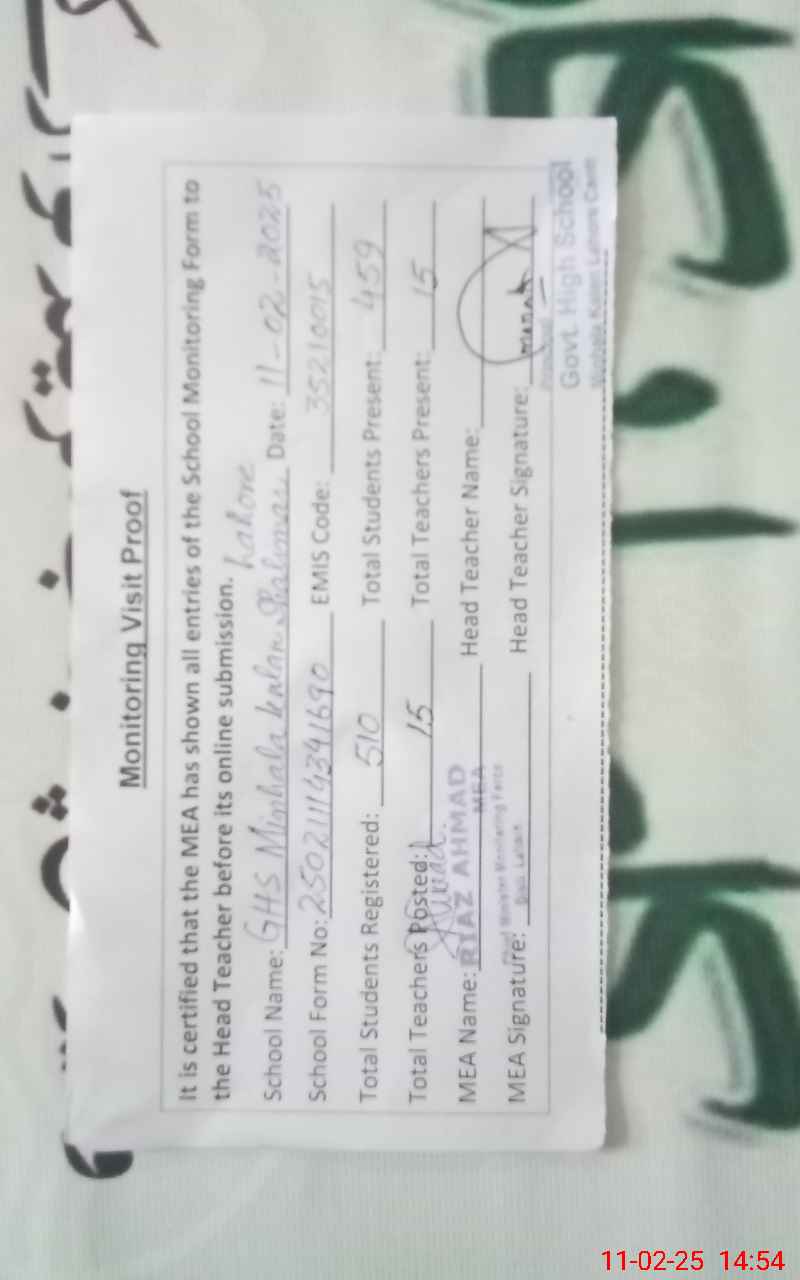 Monitoring Visit Proof
It is certified that the MEA has shown all entries of the School Monitoring Form to
the Head Teacher before its online submission.
Lahore
School Name: GHS Minhala kalan Shalimar Date: 11-02-2025
School Form No: EMIS Code: 35210015
Total Students Registered: 510 Total Students Present: 459
Total Teachers Posted: 15 Total Teachers Present: 15
MEA Name: RIAZ AHMAD Head Teacher Name:
MEA
MEA Signature: Head Teacher Signature:
Chief Minister Monitoring Force
Distt. Lahore
Principal
Govt. High School
Minhala Kalan Lahore Cantt
11-02-25 14:54